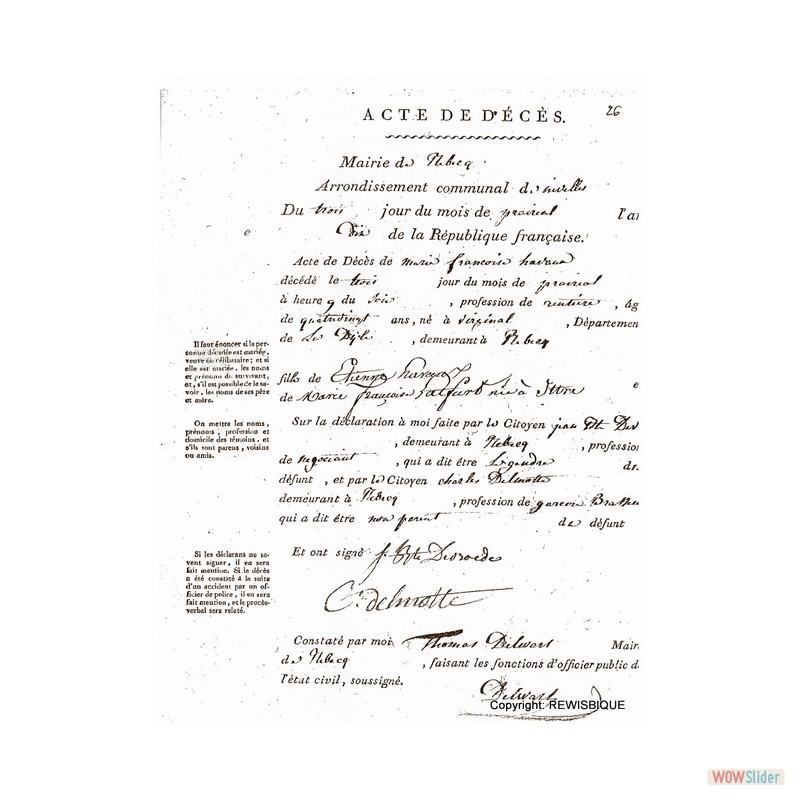 ACTE DE DÉCÈS.
26
Mairie de Rebecq
Arrondissement communal de nivelles
Du trois jour du mois de prairial l'an
Dix de la République française.
Acte de Décès de marie françoise havaux
décédé le trois jour du mois de prairial
à heure 9 du soir , profession de rentière , âg
de quatrevingt ans, né à virginal , Départemen
de La Dyle , demeurant à Rebecq
Il faut énoncer si la per-
sonne décédée est mariée,
veuve ou célibataire; et si
elle est mariée, les noms
et prénoms du survivant,
et, s'il est possible de le sa-
voir, les noms de ses père
et mère.
fille de Etienne havaux e
de Marie françoise née à Ittre
On mettra les noms,
prénoms, profession et
domicile des témoins, et
s'ils sont parens, voisins
ou amis.
Sur la déclaration à moi faite par le Citoyen jean Bte Des
, demeurant à Rebecq , profession
de negociant , qui a dit être Le gendre de
défunt , et par le Citoyen charles Delmotte
demeurant à Rebecq , profession de garcon Brasseu
qui a dit être non parent de défunt
Si les déclarans ne sa-
vent signer, il en sera
fait mention. Si le décès
a été constaté à la suite
d'un accident par un of-
ficier de police, il en sera
fait mention, et le procès-
verbal sera relaté.
Et ont signé j. Bte Desroede
C. delmotte
Constaté par moi Thomas Delwart Maire
de Rebecq , faisant les fonctions d'officier public d
l'état civil, soussigné.
Delwart
Copyright: REWISBIQUE
WOWSlider